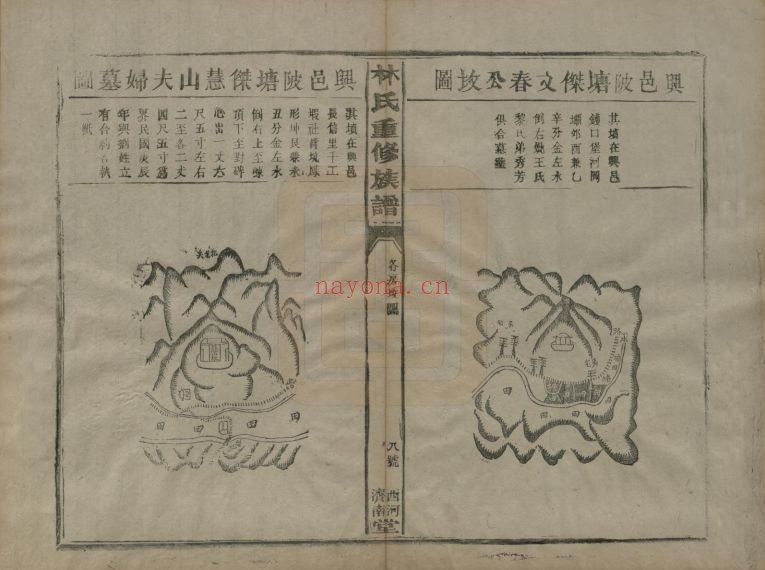 興邑陂塘傑文春公坟圖
其墳在興邑
錢口堡河圓
壩邜酉兼乙
辛分金左水
倒右與王氏
黎氏弟秀芳
俱合墓
田
田
田
田
林氏重修族譜
各房坟圖
八號
西河
濟南
堂
興邑陂塘傑慧山夫婦墓圖
其墳在興邑
長信里千工
壩社背坑鳳
形坤艮兼未
丑分金左水
倒右上至崠
頂下至對碑
心出一丈六
尺五寸左右
二至各二丈
四尺五寸爲
界民國庚辰
年與劉姓立
有合約各執
一紙
田
田
田
田
nayona.cn